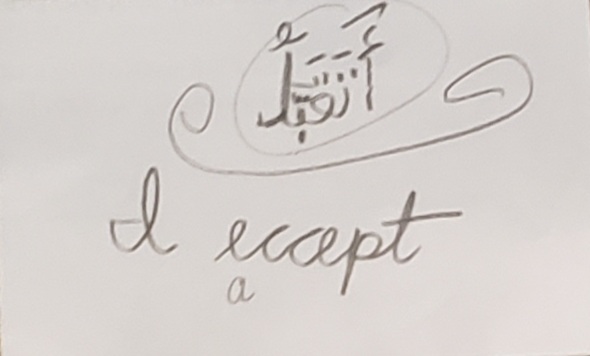 أَتَقَبَّلُ
I eccept
a